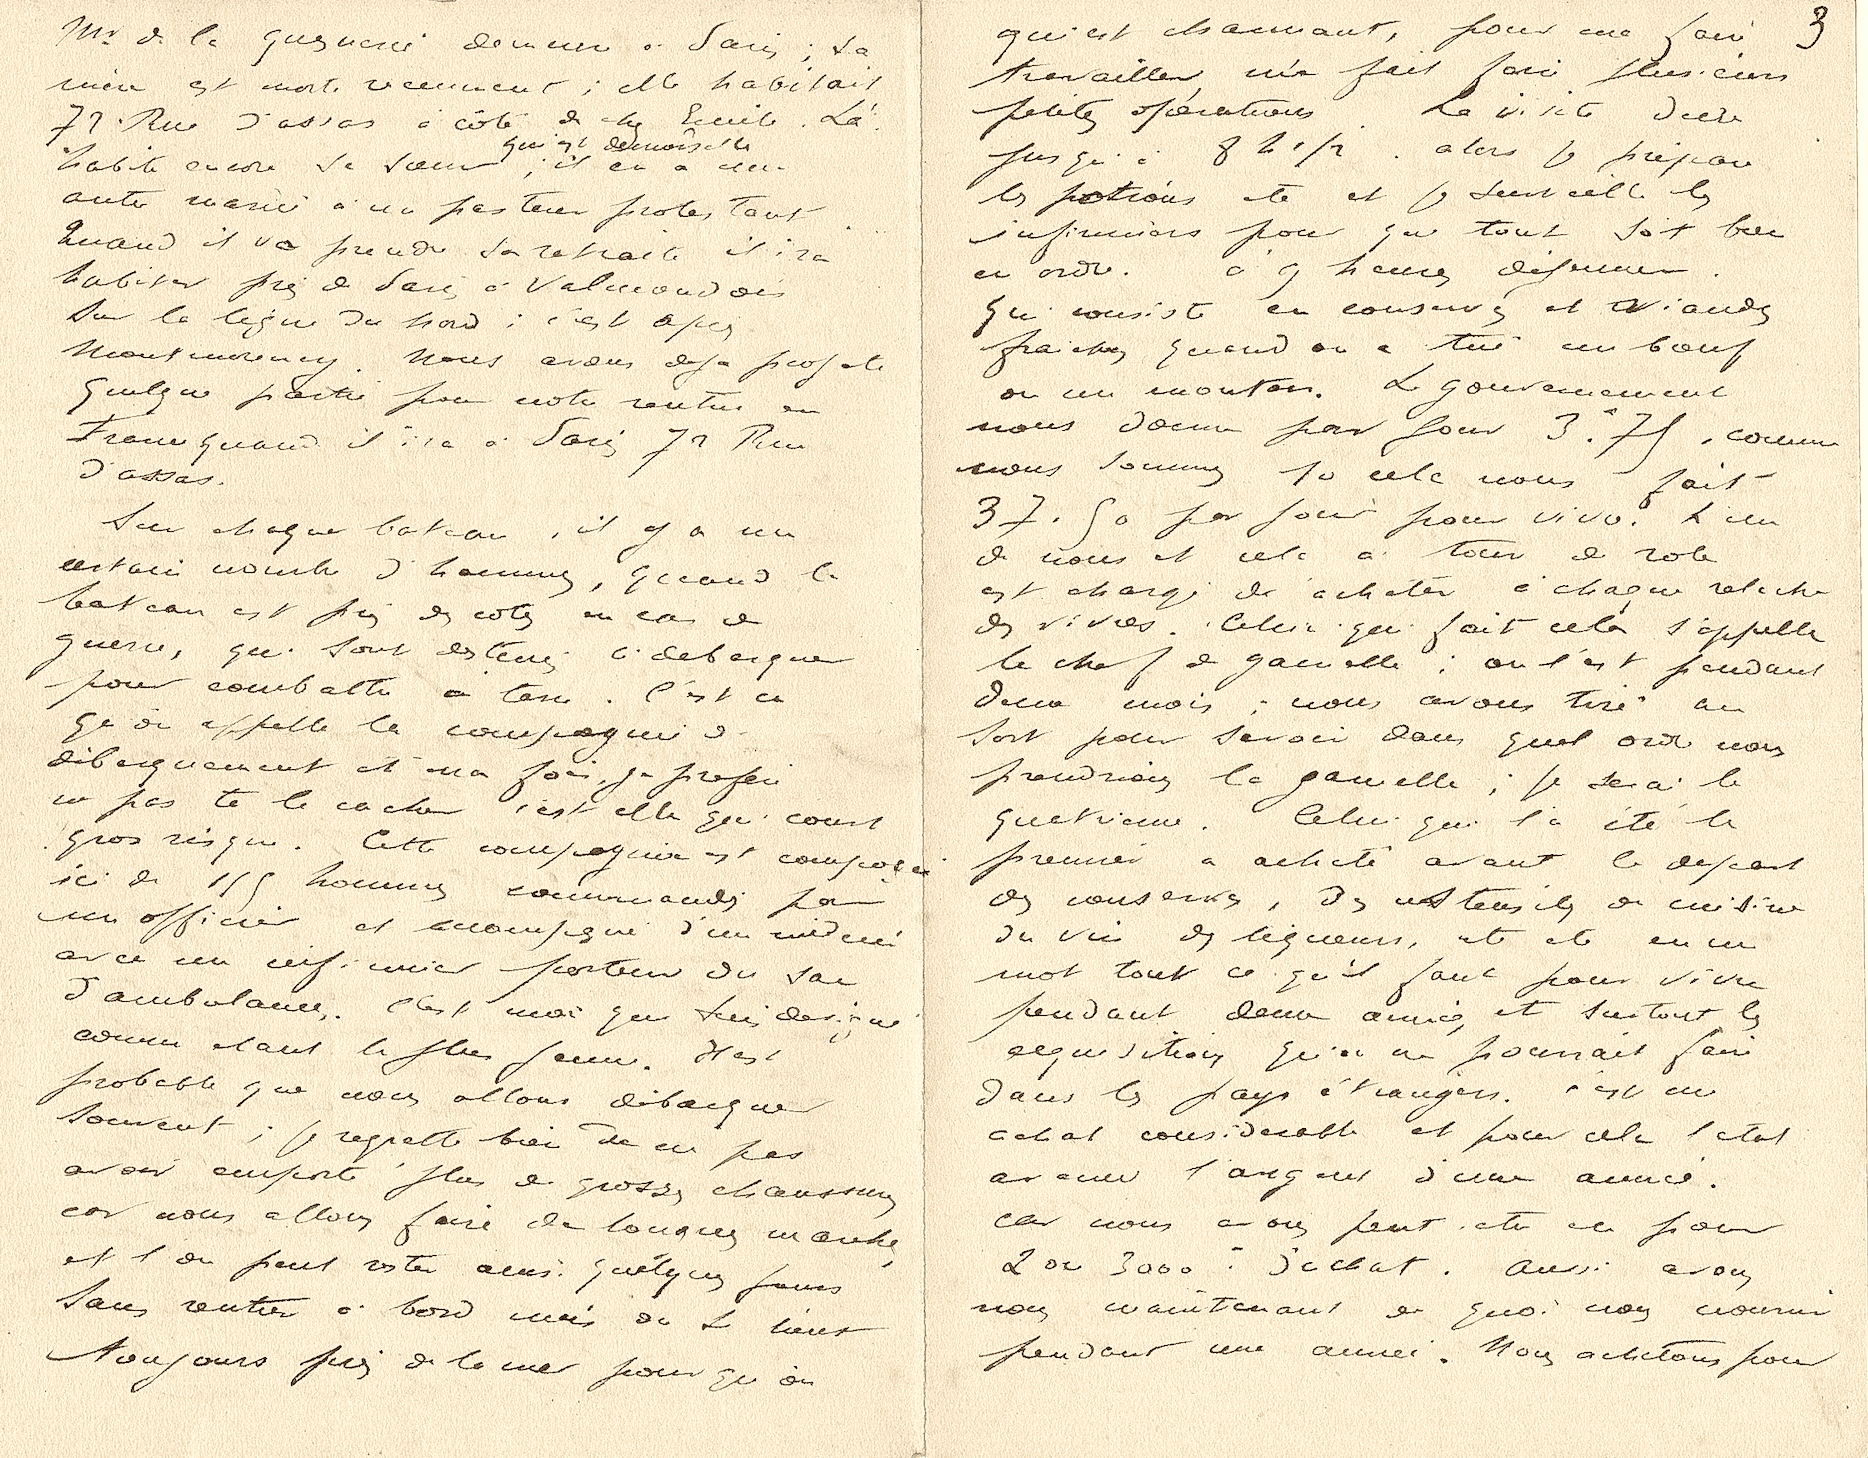 Mr de la Guerrerie demeure à Paris ; sa
mère est morte recemment ; elle habitait
72 Rue d'assas à côté de chez Emile. Là
habite encore sa sœur qui est demoiselle ; il en a une
autre mariée à un pasteur protestant
Quand il va prendre sa retraite il ira
habiter près de Paris à Valmondois
sur la ligne du Nord ; c'est après
Montmorency. Nous avons deja projeté
quelque partie pour notre rentrée en
France quand il ira à Paris 72 Rue
d'assas.
Sur chaque bateau, il y a un
certain nombre d'hommes, quand le
bateau est près des cotes en cas de
guerre, qui sont destinés à debarquer
pour combattre à terre. C'est ce
qu'on appelle la compagnie de
débarquement et ma foi, je prefère
ne pas te le cacher c'est elle qui court
gros risque. Cette compagnie est composée
ici de 155 hommes commandés par
un officier et accompagné d'un médecin
avec un infirmier porteur du sac
d'ambulance. C'est moi qui suis designé
comme etant le plus jeune. Il est
probable que nous allons débarquer
souvent ; je regrette bien de ne pas
avoir emporté plus de grosses chaussures
car nous allons faire de longues marches
et l'on peut rester ainsi quelques jours
sans rentrer à bord mais on se tient
toujours près de la mer pour qu'on
3
qui est charmant, pour me faire
travailler m'a fait faire plusieurs
petites opérations. La visite dure
jusqu'à 8 h 1/2. alors je prépare
les potions etc et je surveille les
infirmiers pour que tout soit bien
en ordre. à 9 heures déjeuner.
qui consiste en conserves et viandes
fraiches quand on a tué un bœuf
ou un mouton. Le gouvernement
nous donne par jour 3.75, comme
nous sommes 10 cela nous fait
37.50 par jour pour vivre. L'un
de nous et cela à tour de role
est chargé de acheter à chaque relache
des vivres. Celui qui fait cela s'appelle
le chef de gamelle ; on l'est pendant
deux mois ; nous avons tiré au
sort pour savoir dans quel ordre nous
prendrions la gamelle ; je serai le
quatrième. Celui qui l'a été le
premier a acheté avant le depart
des conserves, des ustensiles de cuisine
du vin des liqueurs, etc etc en un
mot tout ce qu'il faut pour vivre
pendant deux années et surtout les
acquisitions qu'on ne pourrait faire
dans les pays étrangers. c'est un
achat considerable et pour cela l'etat
avance l'argent d'une année.
car nous avons peut etre eu pour
2 ou 3000 f d'achat. Aussi avons
nous maintenant de quoi nous nourrir
pendant une année. Nous achetons pour